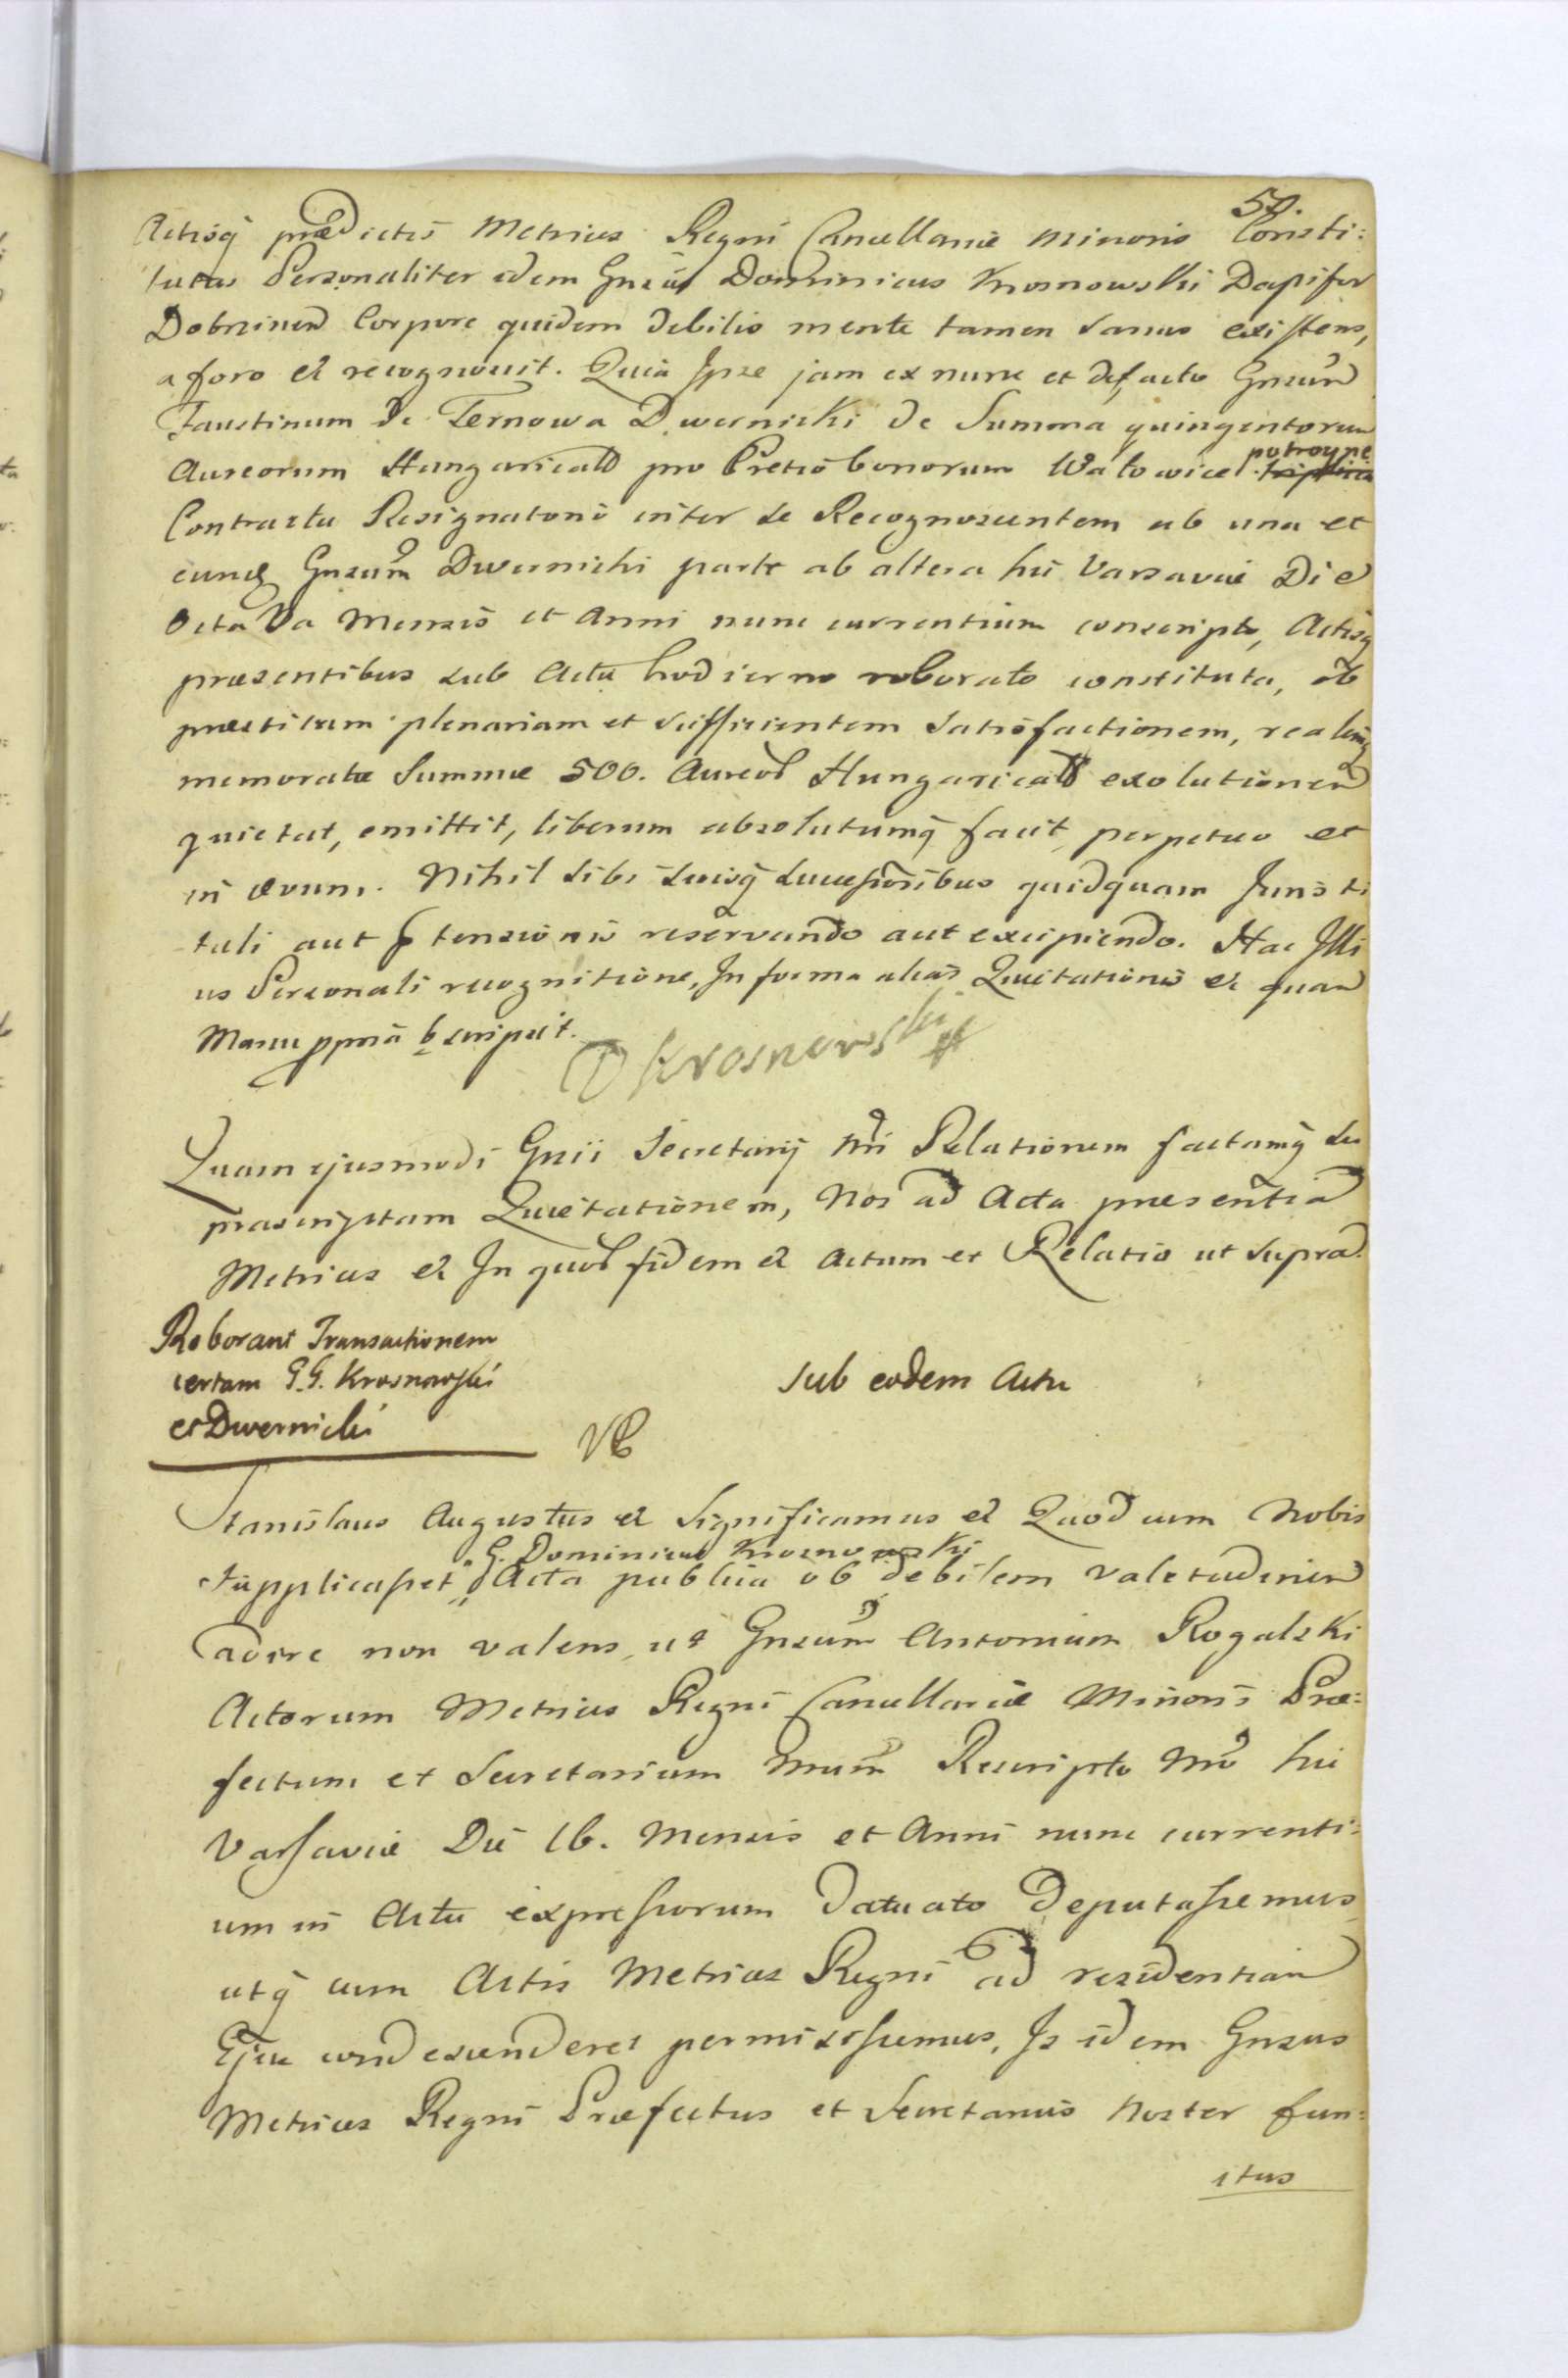 50.
Actisq̃ prædictis Metrices Regni Cancellariæ minoris Consti:
tutus Personaliter idem Gnsus Dominicus Krosnowski Dapifer
Dobrinen Corpore quidem debilis mente tamen sanus existens,
a foro et recognovit. Quia Ipse jam ex nunc et de facto Gnsum
Faustinum de Ternowa Dwernicki de Summa quingentorum
Aureorum Hungaricał pro Pretio bonorum Watowice potroyne
Contractu Resignatonis inter se Recognoscentem ab una et
eunq̃ Gnsum Dwernicki parte ab altera hic Varsaviæ Die
Octava Mensis et Anni nunc currentium conscripto, Actisq̃
præsentibus sub Actu hodierno roborato constituta, ob
præstitam plenariam et sufficientem satisfactionem, realemq̃
memoratæ Summæ 500. Aureoł Hungaricał exolutionem
quietat, emittit, liberum absolutumq̃ facit, perpetuo et
in ævum. Nihil sibi suisq̃ successoribus quidquam Juris ti
tuli aut ptensionis reservando aut excipiendo. Hac Illi
us Personali recognitione, In forma alias Quietationis et quam
Manu ppria bscripsit.
D Krosnowski
Quam ejusmodi Gnsi Secretarij Nri Relationem factamq̃ su
prascriptam Quietationem, Nos ad Acta præsentia
Metrices et In quoł fidem et Actum et Relatio ut supra.
Roborant Transactionem
certam G.G. Krosnowski
et Dwernicki
Sub eodem Actu
Stanislaus Augustus et Significamus et Quod cum Nobis
G. Dominicus Krosnowski
supplicasset Acta publica ob debilem valetudinem
adire non valens, ut Gnsum Antonium Rogalski
Actorum Metrices Regni Cancellariæ Minoris Præ:
fectum et Secretarium Nrum Rescripto Nro hic
Varsaviæ Die 16. Mensis et Anni nunc currenti:
um in Actu expressorum datuato Deputassemus
utq̃ cum Actis Metrices Regni ad residentiam
Ejus condescenderet permisissemus, Is idem Gnsus
Metrices Regni Præfectus et Secretarius Noster fun:
ctus